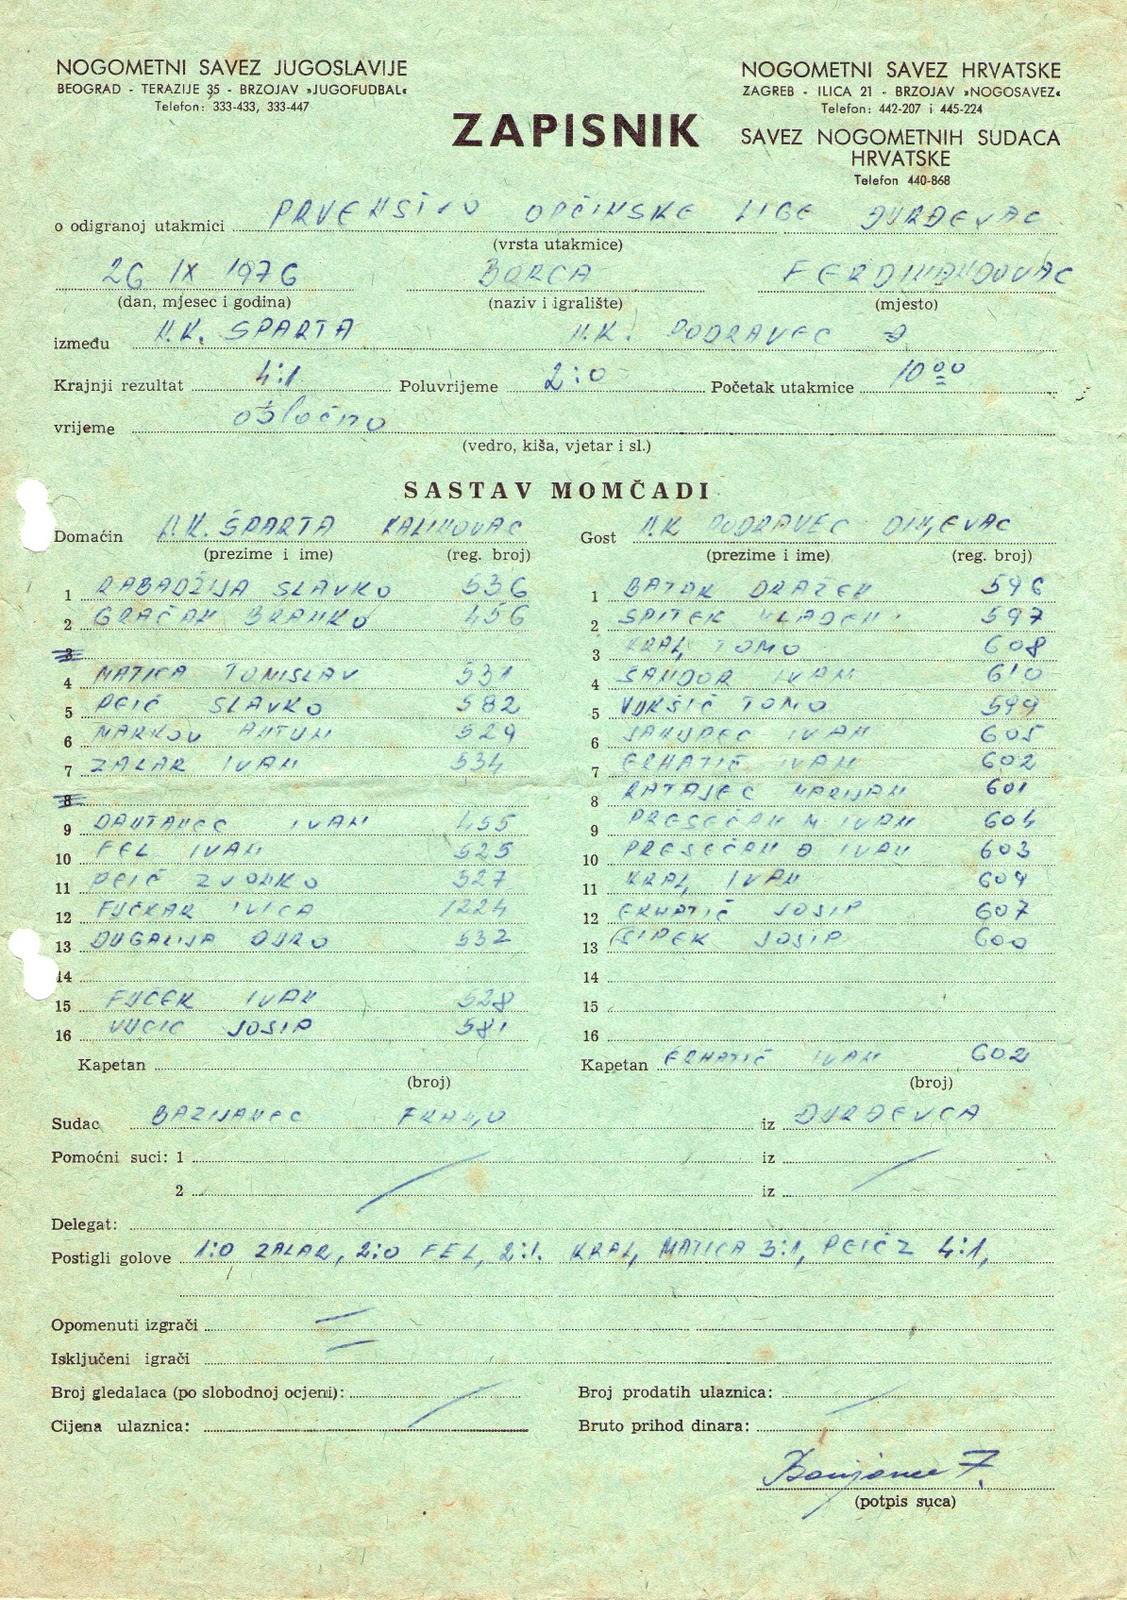 NOGOMETNI SAVEZ JUGOSLAVIJE
BEOGRAD - TERAZIJE 35 - BRZOJAV »JUGOFUDBAL«
Telefon: 333-433, 333-447
NOGOMETNI SAVEZ HRVATSKE
ZAGREB - ILICA 21 - BRZOJAV »NOGOSAVEZ«
Telefon: 442-207 i 445-224
ZAPISNIK
SAVEZ NOGOMETNIH SUDACA
HRVATSKE
Telefon 440-868
o odigranoj utakmici PRVENSTVO OPĆINSKE LIGE ĐURĐEVAC
(vrsta utakmice)
26 IX 1976 BORCA FERDINANDOVAC
(dan, mjesec i godina) (naziv i igralište) (mjesto)
između N.K. SPARTA N.K. PODRAVEC
Krajnji rezultat 4:1 Poluvrijeme 2:0 Početak utakmice 10 00
vrijeme oblačno
(vedro, kiša, vjetar i sl.)
SASTAV MOMČADI
Domaćin N.K. ŠPARTA KALINOVAC Gost N.K PODRAVEC
(prezime i ime) (reg. broj) (prezime i ime) (reg. broj)
1 RABADŽIJA SLAVKO 536 1 BATAK DRAŽEN 596
2 GRAČAN BRANKO 456 2 SPITEK MLADEN 597
3 3 KRALJ TOMO 608
4 MATICA TOMISLAV 531 4 ŠANDOR IVAN 610
5 PEIĆ SLAVKO 582 5 VUKŠIĆ TOMO 599
6 MARKOV ANTUN 529 6 JAKUPEC IVAN 605
7 ZALAR IVAN 534 7 ERHATIĆ IVAN 602
8 8 RATAJEC MARIJAN 601
9 IVAN 455 9 PRESEČAN M IVAN 604
10 FEL IVAN 525 10 PRESEČAN Đ IVAN 603
11 PEIĆ ZVONKO 527 11 KRALJ IVAN 609
12 FUČKAR IVICA 1224 12 ERHATIĆ JOSIP 607
13 DUGALIJA ĐURO 532 13 ŠIPEK JOSIP 600
14 14
15 FUCEK IVAN 528 15
16 VUCIC JOSIP 581 16
Kapetan Kapetan ERHATIĆ IVAN 602
(broj) (broj)
Sudac BAZIJANEC FRANJO iz ĐURĐEVCA
Pomoćni suci: 1 iz
2 iz
Delegat:
Postigli golove 1:0 ZALAR, 2:0 FEL, 2:1. KRALJ, MATICA 3:1, PEIĆ Z 4:1,
Opomenuti izgrači
Isključeni igrači
Broj gledalaca (po slobodnoj ocjeni): Broj prodatih ulaznica:
Cijena ulaznica: Bruto prihod dinara:
(potpis suca)